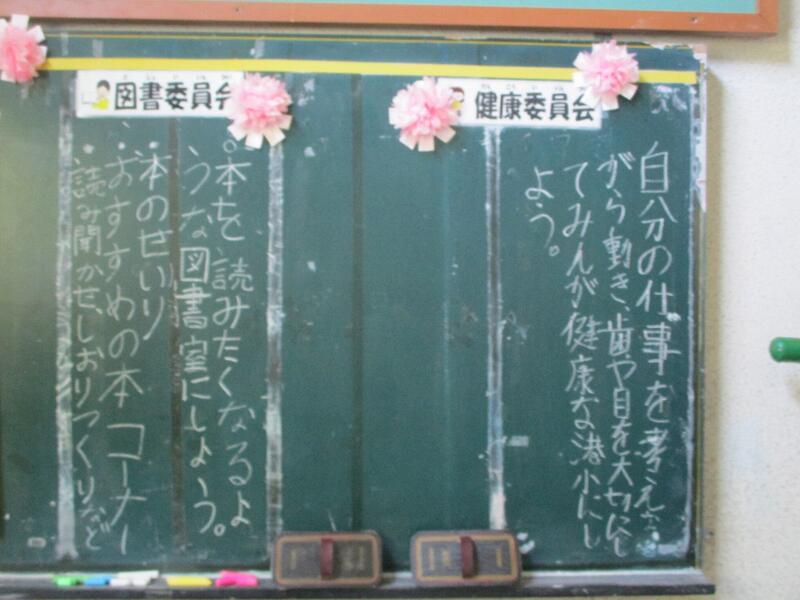 健康委員会
自分の仕事を考えな
がら動き、歯や目を大切にし
てみんが健康な港小にし
よう。
図書委員会
本を読みたくなるよ
うな図書室にしよう。
・本のせいり
・おすすめの本コーナー
・読み聞かせしおりづくりなど